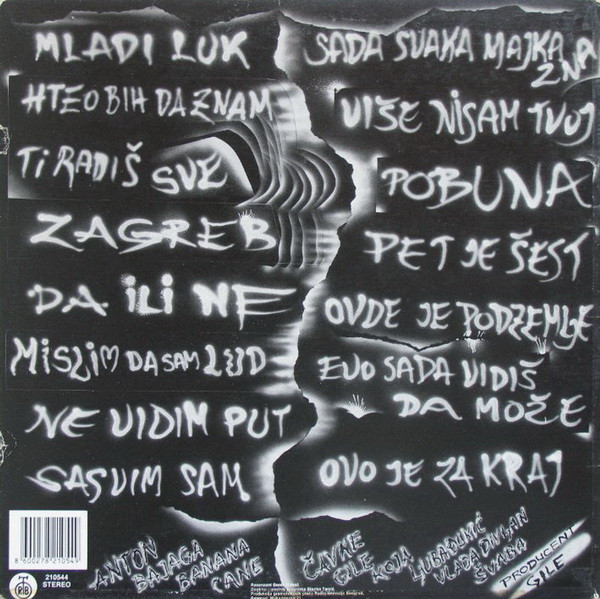 MLADI LUK
HTEO BIH DA ZNAM
TI RADIŠ SVE
ZAGREB
DA ILI NE
MISLIM DA SAM LUD
NE VIDIM PUT
SASVIM SAM
SADA SVAKA MAJKA
ZNA
VIŠE NISAM TVOJ
POBUNA
PET JE ŠEST
OVDE JE PODZEMLJE
EVO SADA VIDIŠ
DA MOŽE
OVO JE ZA KRAJ
8 600278 210549
210544
STEREO
RTB
ANTON
BAJAGA
BANANA
CANE
ČAVKE
GILE
KOJA
LJUBA ĐUKIĆ
VLADA DIVLJAN
ŠVABA
PRODUCENT
GILE